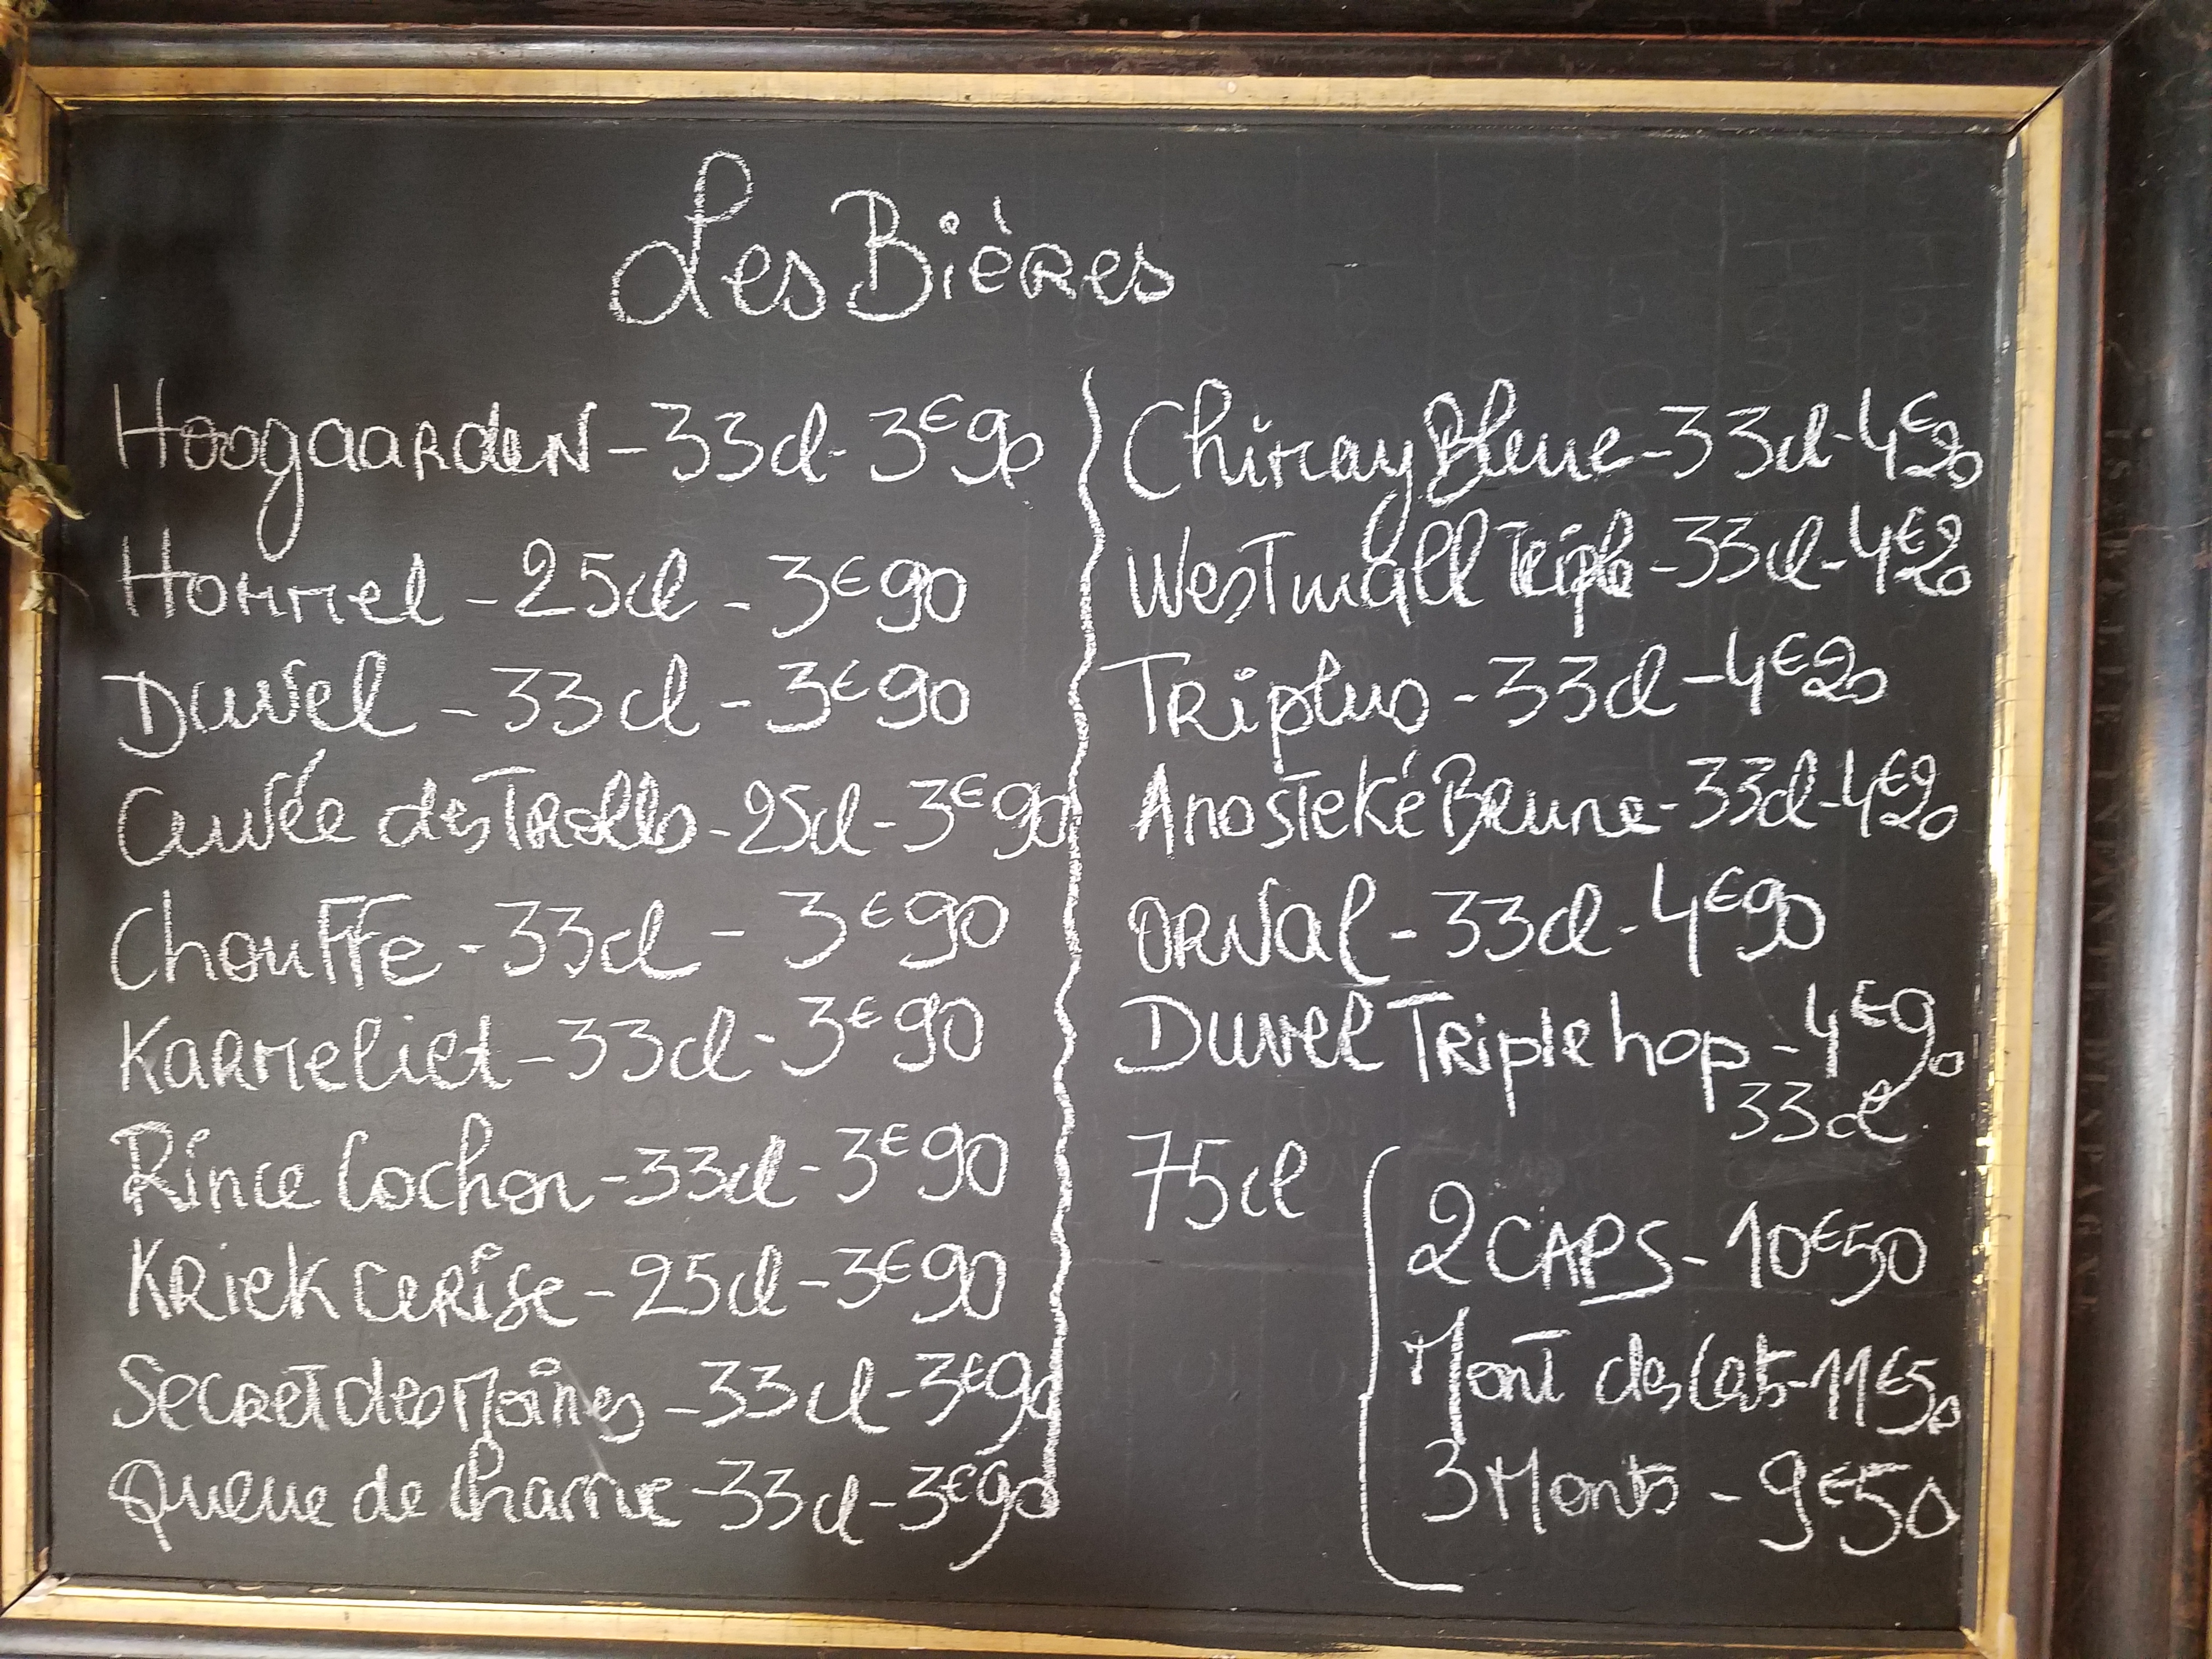 Les Bières
Hoogaarden - 33cl - 3€90
Hommel - 25cl - 3€90
Duvel - 33cl - 3€90
Cuvée des Trolls - 25cl - 3€90
Chouffe - 33cl - 3€90
Karmeliet - 33cl - 3€90
Rince Cochon - 33cl - 3€90
Kriek cerise - 25cl - 3€90
Secret des Moines - 33cl - 3€90
Queue de Charrue - 33cl - 3€90
Chimay Bleue - 33cl - 4€20
Westmall Triple - 33cl - 4€20
Triplus - 33cl - 4€20
Anosteké Brune - 33cl - 4€20
Orval - 33cl - 4€90
Duvel Triple hop - 4€90
33cl
75cl
2 CAPS - 10€50
Mont des Cats - 11€50
3 Monts - 9€50